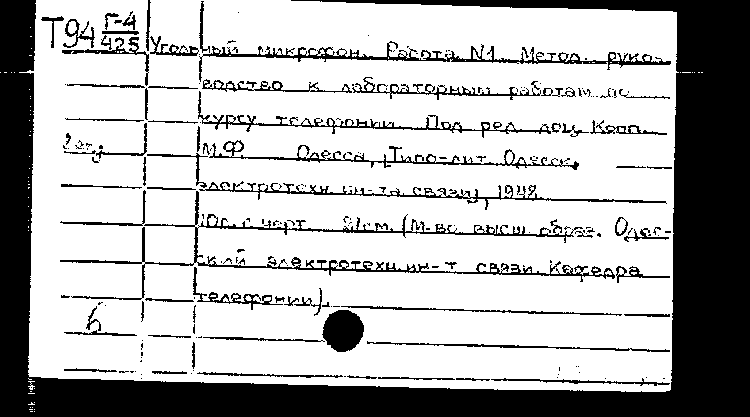 Т94 Г-4
425
Угольный микрофон. Работа N1. Метод. руко-
водство к лабораторным работам по
курсу телефонии. Под ред. доц. Копп
2 эт.,
М.Ф. Одесса, [Типо-лит. Одесск.
электротехн. ин-та связи], 1948.
10с. с черт. 21см. (М-во высш. образ. Одес-
ский электротехн. ин-т связи. Кафедра
телефонии).
6